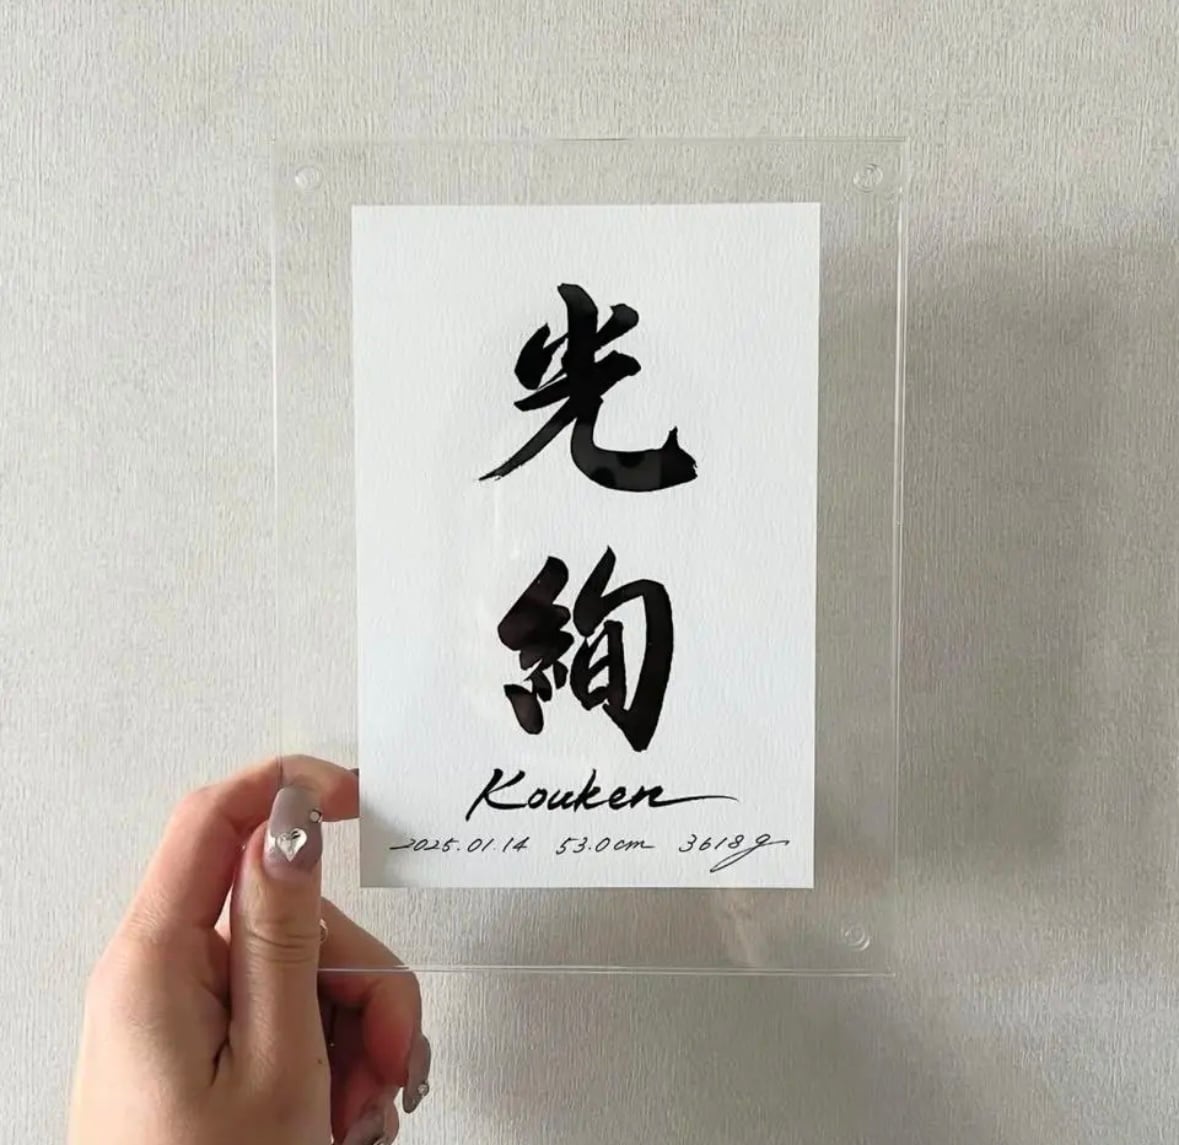 光
絢
Kouken
2025.01.14 53.0cm 3618g